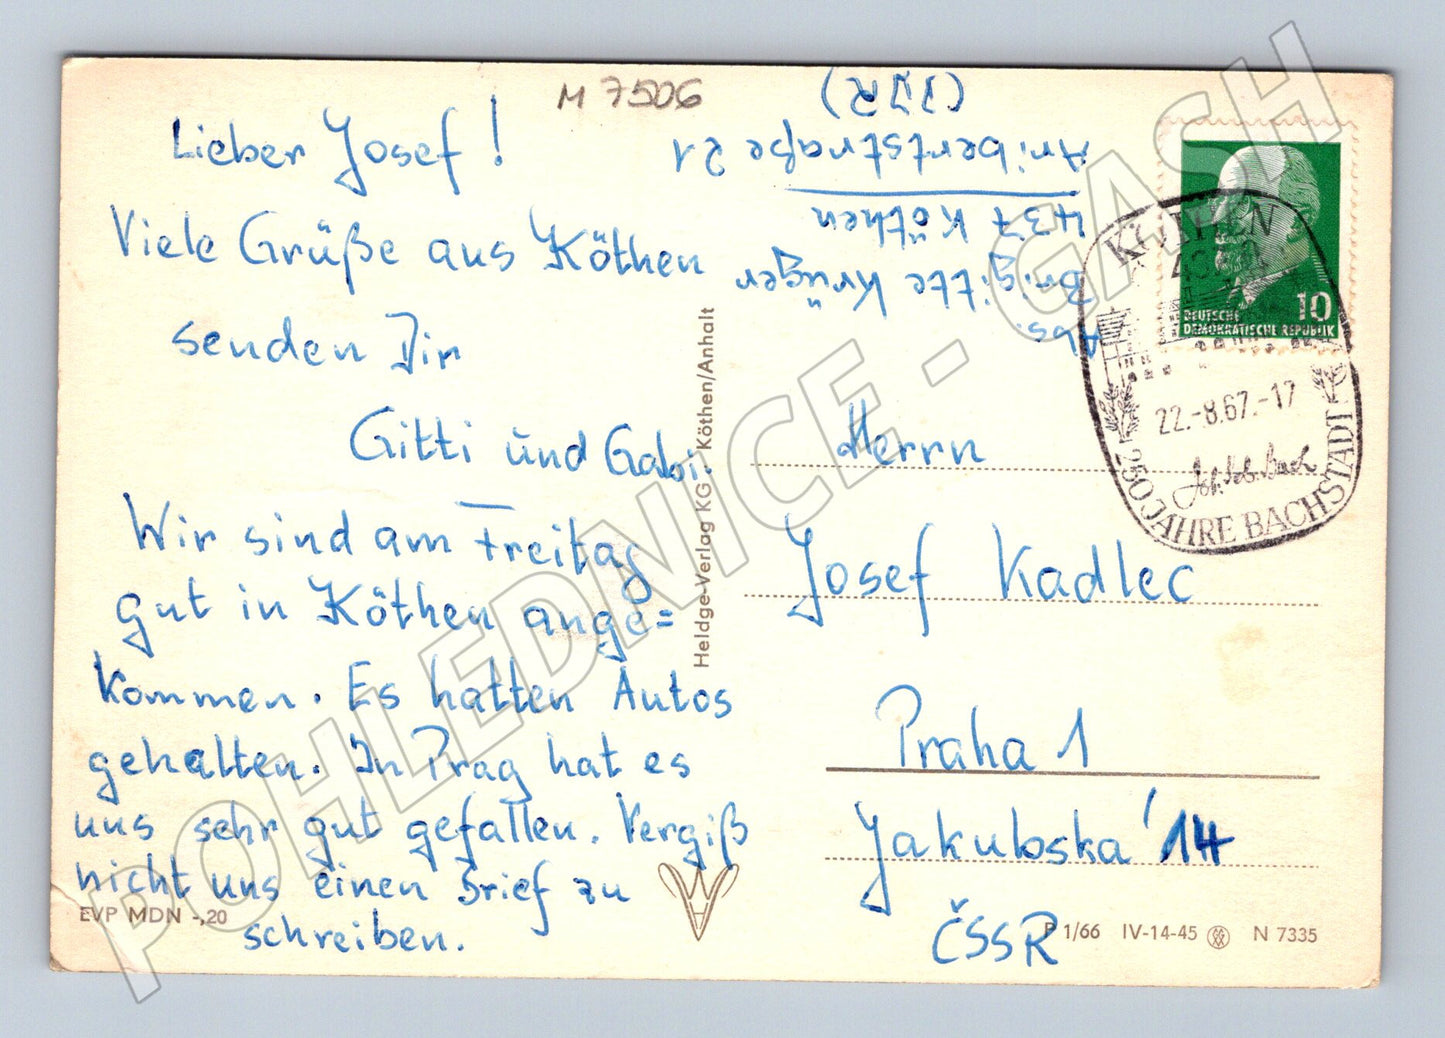 M 7506
Lieber Josef!
Viele Grüße aus Köthen
senden Dir
Gitti und Gabi.
Wir sind am Freitag
gut in Köthen ange=
kommen. Es hatten Autos
gehalten. In Prag hat es
uns sehr gut gefallen. Vergiß
nicht uns einen Brief zu
schreiben.
EVP MDN -,20
Heldge-Verlag KG Köthen/Anhalt
Abs.
Brigitte Krüger
437 Köthen
Aribertstraße 21
(DDR)
10
DEUTSCHE
DEMOKRATISCHE REPUBLIK
KÖTHEN
22.-8.67.-17
Joh. Seb. Bach
250 JAHRE BACHSTADT
Herrn
Josef Kadlec
Praha 1
Jakubska' 14
ČSSR
P 1/66 IV-14-45 N 7335
POHLEDNICE - GASH